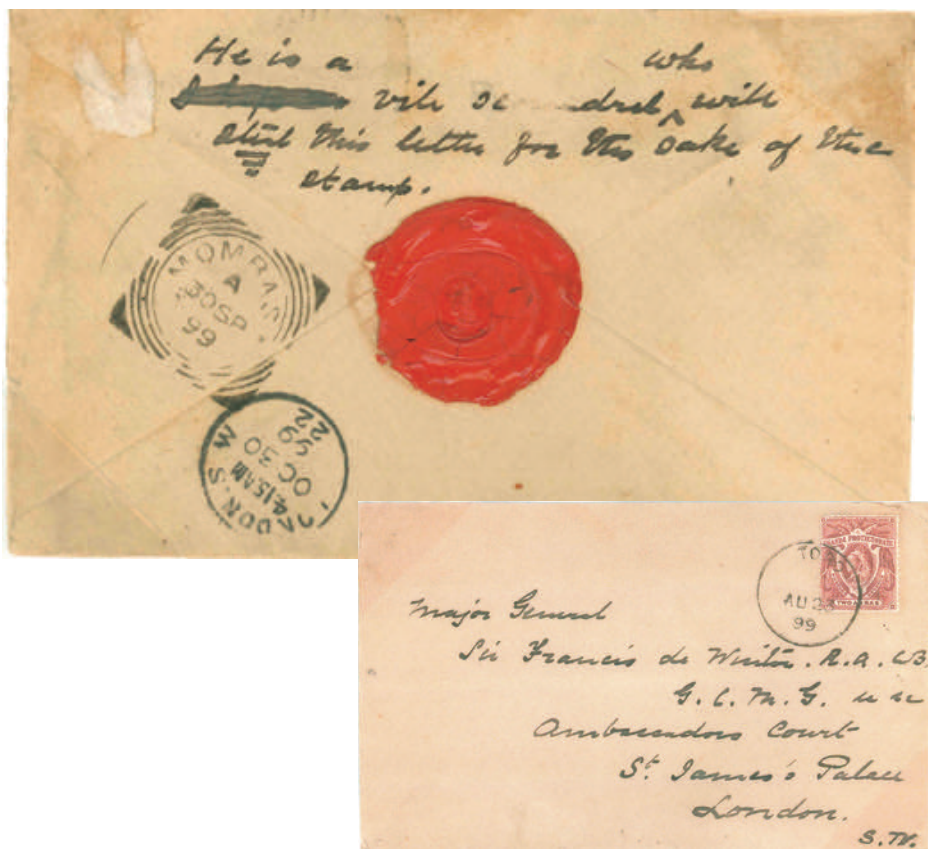 He is a who
vile sc drel ^ will
steal this letter for the sake of the
stamp.
MOMBAS
A
30 SP
99
LONDON. S W
4.15 AM
OC 30
99
22
TORO
AU 23
99
UGANDA PROTECTORATE
TWO ANNAS
Major General
Sir Francis de Winton. R.A. CB.
G. C. M. G. &c &c
Ambassadors Court
St. James's Palace
London.
S.W.